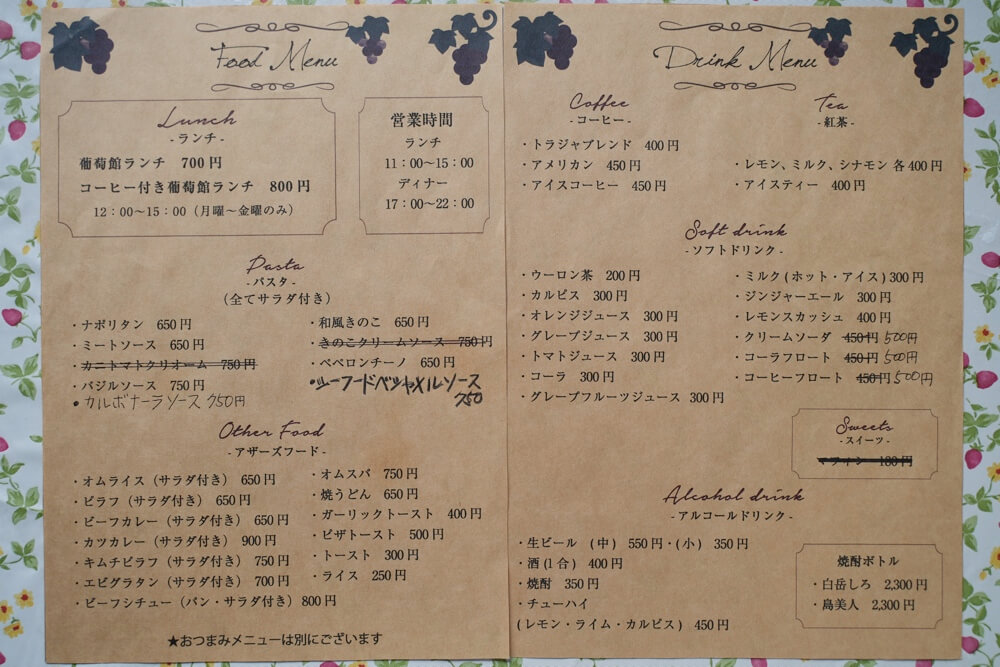 Food Menu
Lunch
- ランチ -
葡萄館ランチ 700円
コーヒー付き葡萄館ランチ 800円
12：00～15：00（月曜～金曜のみ）
営業時間
ランチ
11：00～15：00
ディナー
17：00～22：00
Pasta
- パスタ -
（全てサラダ付き）
・ナポリタン 650円
・ミートソース 650円
・カニトマトクリオーム 750円
・バジルソース 750円
・カルボナーラソース 750円
・和風きのこ 650円
・きのこクリームソース 750円
・ペペロンチーノ 650円
・シーフードベシャメルソース
750
Other Food
- アザーズフード -
・オムライス（サラダ付き） 650円
・ピラフ（サラダ付き） 650円
・ビーフカレー（サラダ付き） 650円
・カツカレー（サラダ付き） 900円
・キムチピラフ（サラダ付き） 750円
・エビグラタン（サラダ付き） 700円
・ビーフシチュー（パン・サラダ付き）800円
・オムスパ 750円
・焼うどん 650円
・ガーリックトースト 400円
・ピザトースト 500円
・トースト 300円
・ライス 250円
★おつまみメニューは別にございます
Drink Menu
Coffee
- コーヒー -
・トラジャブレンド 400円
・アメリカン 450円
・アイスコーヒー 450円
Tea
- 紅茶 -
・レモン、ミルク、シナモン 各400円
・アイスティー 400円
Soft drink
- ソフトドリンク -
・ウーロン茶 200円
・カルピス 300円
・オレンジジュース 300円
・グレープジュース 300円
・トマトジュース 300円
・コーラ 300円
・グレープフルーツジュース 300円
・ミルク(ホット・アイス) 300円
・ジンジャーエール 300円
・レモンスカッシュ 400円
・クリームソーダ 450円 500円
・コーラフロート 450円 500円
・コーヒーフロート 450円 500円
Sweets
- スイーツ -
マフィン 180円
Alcohol drink
- アルコールドリンク -
・生ビール (中) 550円・(小) 350円
・酒(1合) 400円
・焼酎 350円
・チューハイ
(レモン・ライム・カルピス) 450円
焼酎ボトル
・白岳しろ 2,300円
・島美人 2,300円